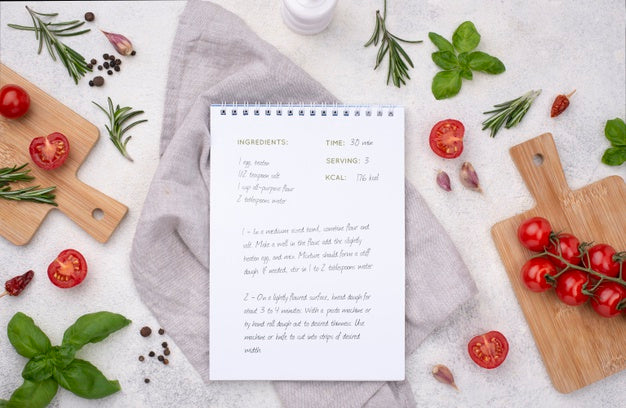 INGREDIENTS:
1 egg, beaten
1/2 teaspoon salt
1 cup all-purpose flour
2 tablespoons water
TIME: 30 min
SERVING: 3
KCAL: 176 kcal
1 - In a medium sized bowl, combine flour and
salt. Make a well in the flour, add the slightly
beaten egg, and mix. Mixture should form a stiff
dough. If needed, stir in 1 to 2 tablespoons water
2 - On a lightly floured surface, knead dough for
about 3 to 4 minutes. With a pasta machine or
by hand roll dough out to desired thinness. Use
machine or knife to cut into strips of desired
width